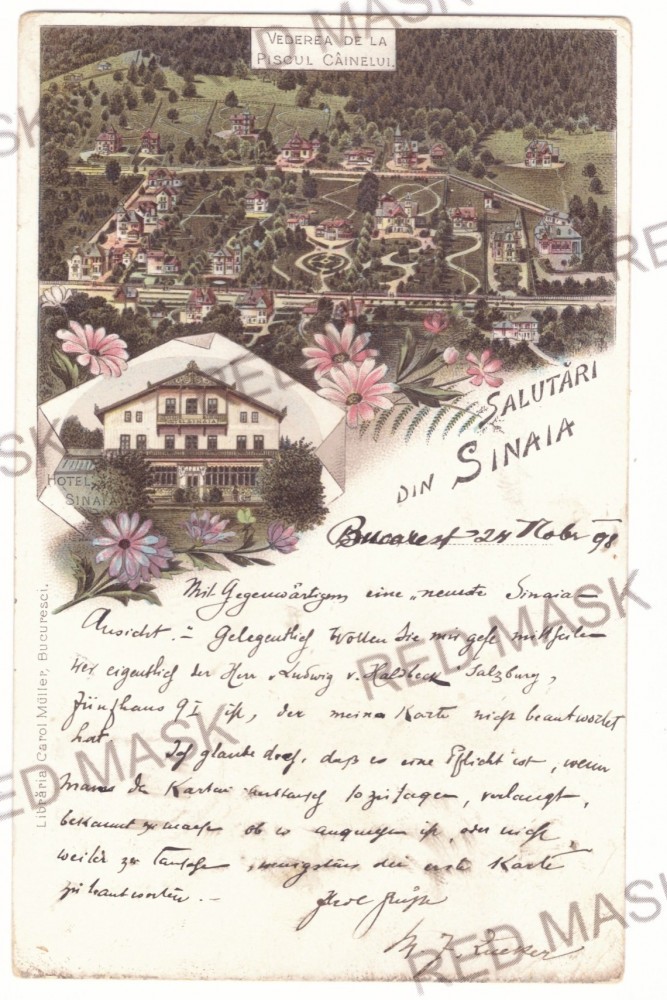 VEDEREA DE LA
PISCUL CÂINELUI.
HOTEL SINAIA
HOTEL
SINAIA
SALUTĂRI
DIN SINAIA
Bucarest 24 Nobr 98
Mit Gegenwärtigem eine „neueste Sinaia-
Ansicht. – Gelegentlich wollen Sie mir gefl mittheilen
wer eigentlich der Herr „Ludwig v. Haldbeck" Salzburg,
91 ist, der meine Karte nicht beantwortet
hat.
Ich glaube doch, daß es eine Pflicht ist, wenn
man den Karten-austausch sozusagen, verlangt,
bekannt zu machen ob es angenehm ist, oder nicht
weiter zu tauschen, wenigstens die erste Karte
zu beantworten. –
Hrol Grüße
M. J.
Librăria Carol Müller, Bucuresci.
RED MASK
RED MASK
RED MASK
RED MASK
RED MASK
RED MASK
RED MASK